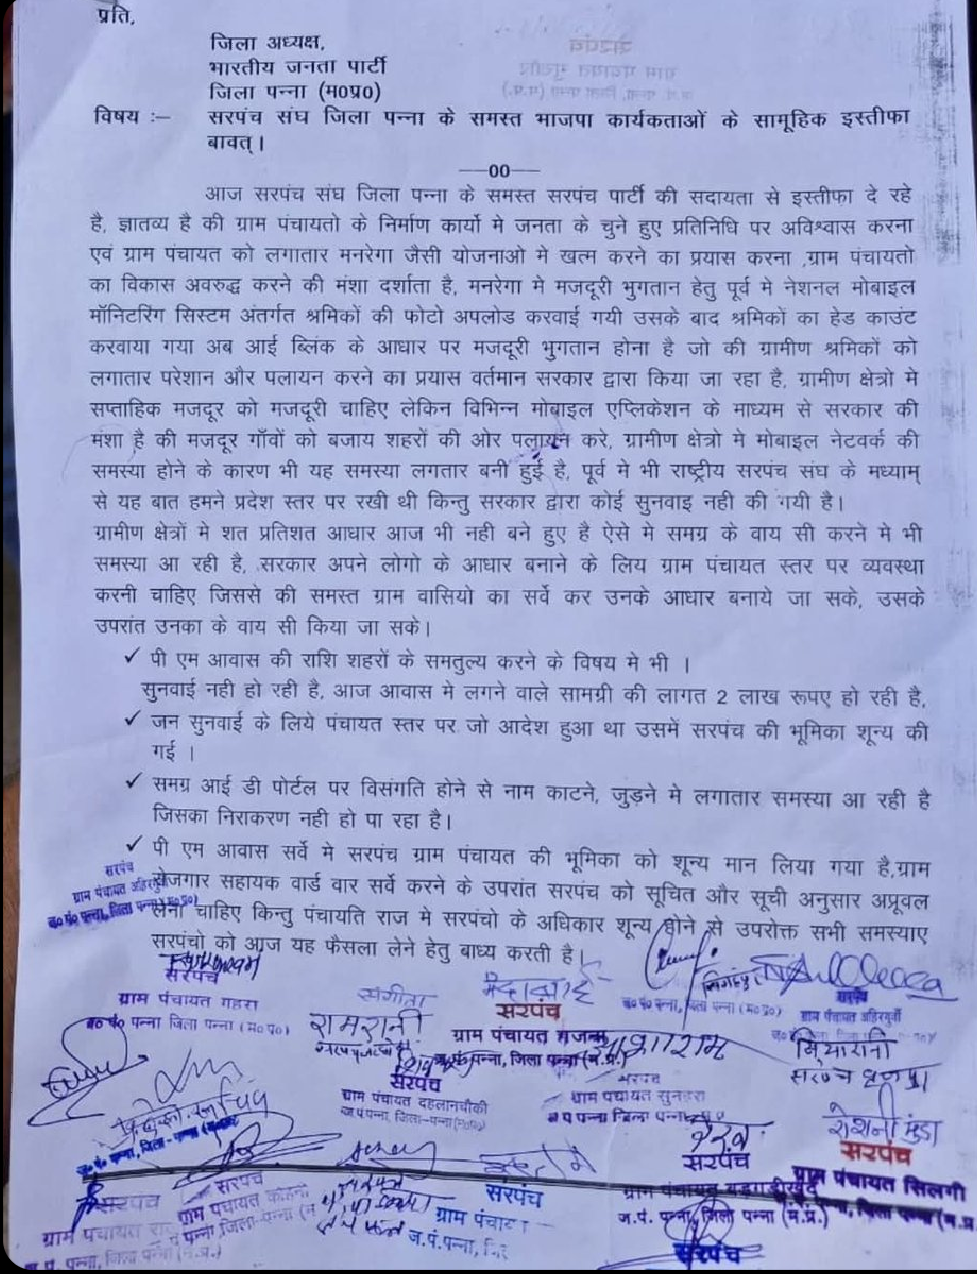 प्रति,
जिला अध्यक्ष,
भारतीय जनता पार्टी
जिला पन्ना (म0प्र0)
विषय :– सरपंच संघ जिला पन्ना के समस्त भाजपा कार्यकताओं के सामूहिक इस्तीफा
बावत्।
—00—
आज सरपंच संघ जिला पन्ना के समस्त सरपंच पार्टी की सदायता से इस्तीफा दे रहे
है, ज्ञातव्य है की ग्राम पंचायतो के निर्माण कार्यो मे जनता के चुने हुए प्रतिनिधि पर अविश्वास करना
एवं ग्राम पंचायत को लगातार मनरेगा जैसी योजनाओ मे खत्म करने का प्रयास करना ,ग्राम पंचायतो
का विकास अवरुद्ध करने की मंशा दर्शाता है, मनरेगा मे मजदूरी भुगतान हेतु पूर्व मे नेशनल मोबाइल
मॉनिटरिंग सिस्टम अंतर्गत श्रमिकों की फोटो अपलोड करवाई गयी उसके बाद श्रमिकों का हेड काउंट
करवाया गया अब आई ब्लिंक के आधार पर मजदूरी भुगतान होना है जो की ग्रामीण श्रमिकों को
लगातार परेशान और पलायन करने का प्रयास वर्तमान सरकार द्वारा किया जा रहा है, ग्रामीण क्षेत्रो मे
सप्ताहिक मजदूर को मजदूरी चाहिए लेकिन विभिन्न मोबाइल एप्लिकेशन के माध्यम से सरकार की
मंशा है की मजदूर गाँवों को बजाय शहरों की ओर पलायन करे, ग्रामीण क्षेत्रो मे मोबाइल नेटवर्क की
समस्या होने के कारण भी यह समस्या लगतार बनी हुई है, पूर्व मे भी राष्ट्रीय सरपंच संघ के मध्याम्
से यह बात हमने प्रदेश स्तर पर रखी थी किन्तु सरकार द्वारा कोई सुनवाइ नही की गयी है।
ग्रामीण क्षेत्रों मे शत प्रतिशत आधार आज भी नही बने हुए है ऐसे मे समग्र के वाय सी करने मे भी
समस्या आ रही है, सरकार अपने लोगो के आधार बनाने के लिय ग्राम पंचायत स्तर पर व्यवस्था
करनी चाहिए जिससे की समस्त ग्राम वासियो का सर्वे कर उनके आधार बनाये जा सके, उसके
उपरांत उनका के वाय सी किया जा सके।
✓ पी एम आवास की राशि शहरों के समतुल्य करने के विषय मे भी ।
सुनवाई नही हो रही है, आज आवास मे लगने वाले सामग्री की लागत 2 लाख रूपए हो रही है,
✓ जन सुनवाई के लिये पंचायत स्तर पर जो आदेश हुआ था उसमें सरपंच की भूमिका शून्य की
गई ।
✓ समग्र आई डी पोर्टल पर विसंगति होने से नाम काटने, जुड़ने मे लगातार समस्या आ रही है
जिसका निराकरण नही हो पा रहा है।
✓ पी एम आवास सर्वे मे सरपंच ग्राम पंचायत की भूमिका को शून्य मान लिया गया है,ग्राम
रोजगार सहायक वार्ड वार सर्वे करने के उपरांत सरपंच को सूचित और सूची अनुसार अप्रूवल
लेना चाहिए किन्तु पंचायति राज मे सरपंचो के अधिकार शून्य होने से उपरोक्त सभी समस्याए
सरपंचो को आज यह फैसला लेने हेतु बाध्य करती है।
सरपंच
सरपंच
ग्राम पंचायत गहरा
ज० पं० पन्ना जिला पन्ना (म० प्र०)
संगीता
रामरानी
सरपंच
ग्राम पंचायत
ज.पं. पन्ना, जिला पन्ना (म.प्र.)
सरपंच
सियारानी
सरपंच
सरपंच
ग्राम पंचायत दहलानचौकी
सरपंच
ग्राम पंचायत
रोशनी मुंडा
सरपंच
ग्राम पंचायत सिलगी
सरपंच
ज.पं. पन्ना, जिला पन्ना (म.प्र.)
सरपंच
ग्राम पंचायत
सरपंच
सरपंच
ग्राम पंचा
ज.पं.पन्ना,
सरपंच